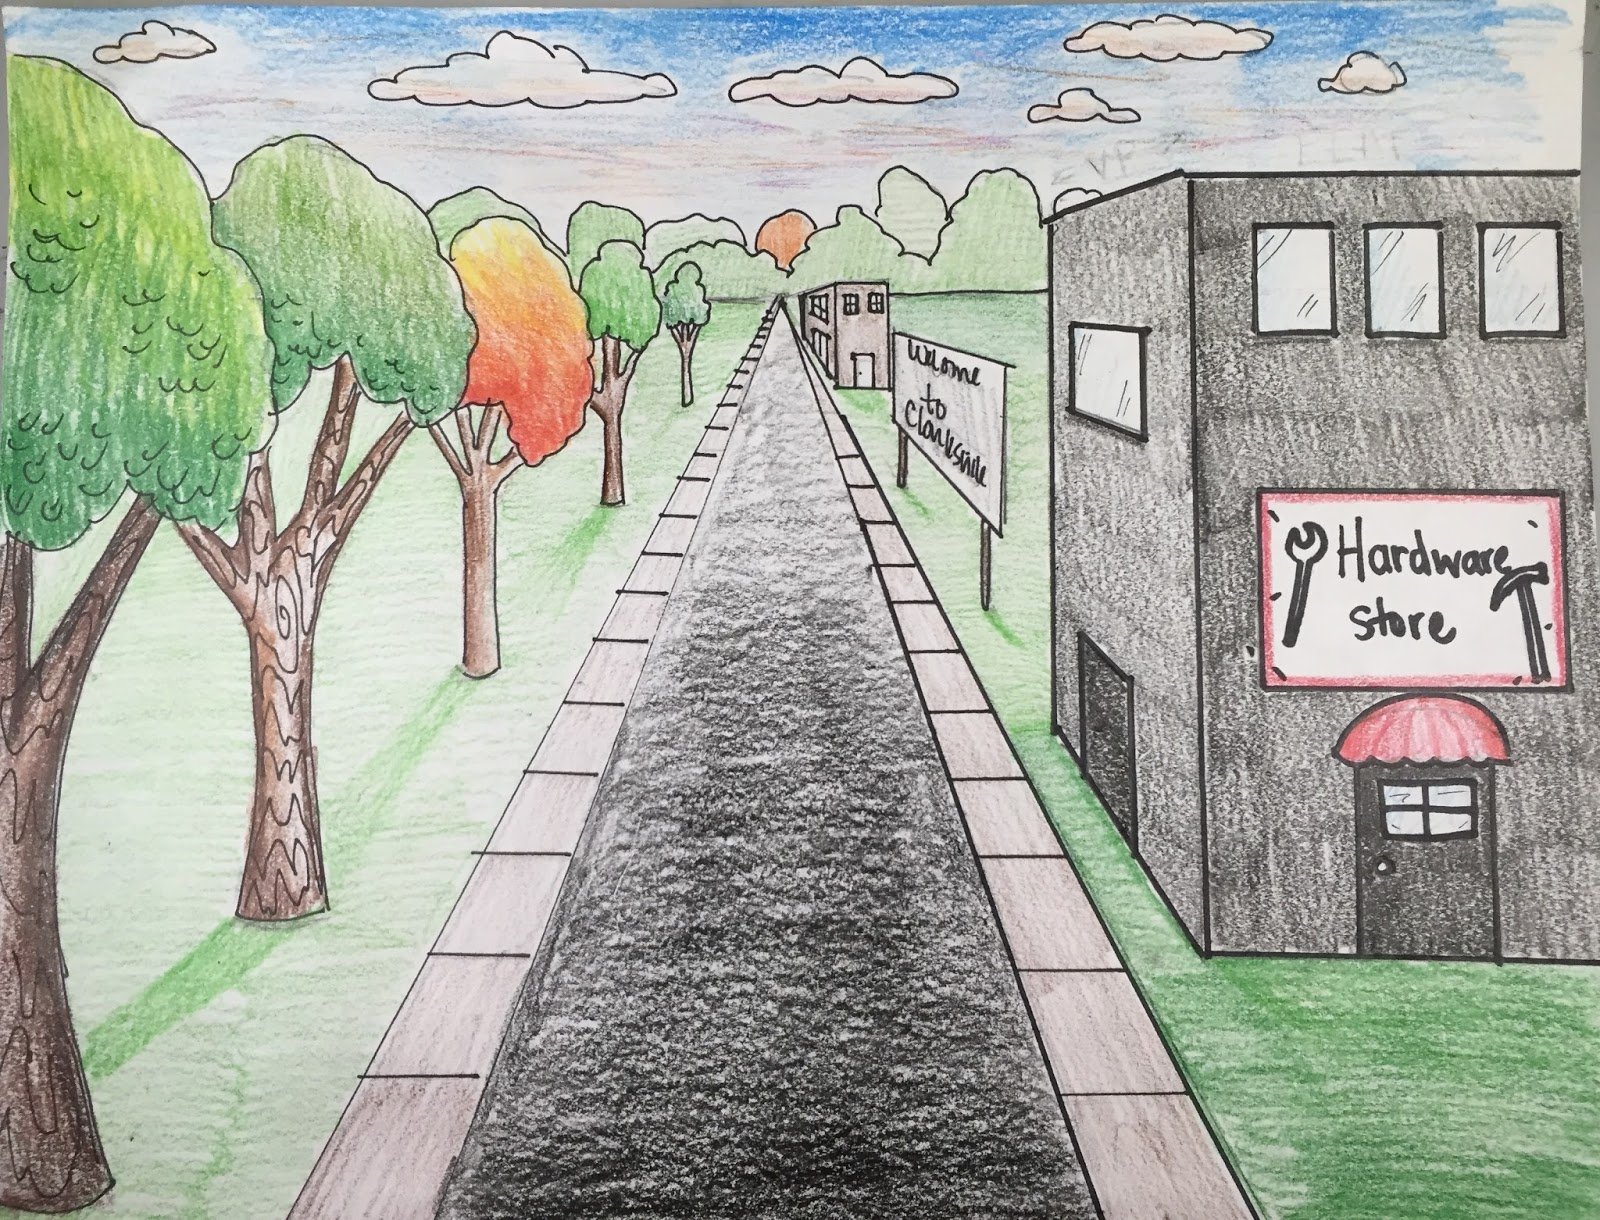 Welcome
to
Clarksville
Hardware
store